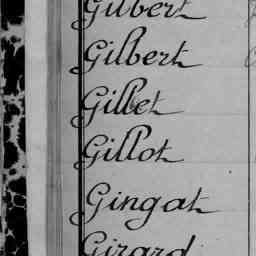 Gilbert
Gilbert
Gillet
Gillot
Gingat
Girard